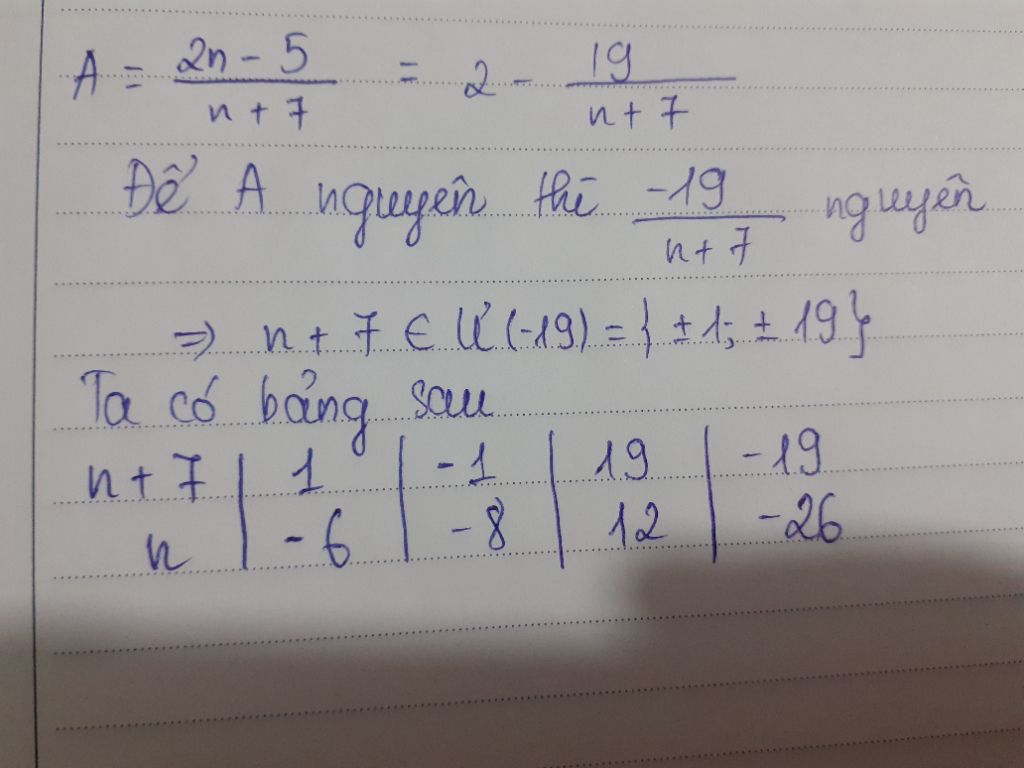 A = 2n - 5 / n + 7 = 2 - 19 / n + 7
Để A nguyên thì -19 / n + 7 nguyên
=> n + 7 ∈ Ư (-19) = { ± 1; ± 19 }
Ta có bảng sau
n + 7 | 1 | -1 | 19 | -19
n | -6 | -8 | 12 | -26